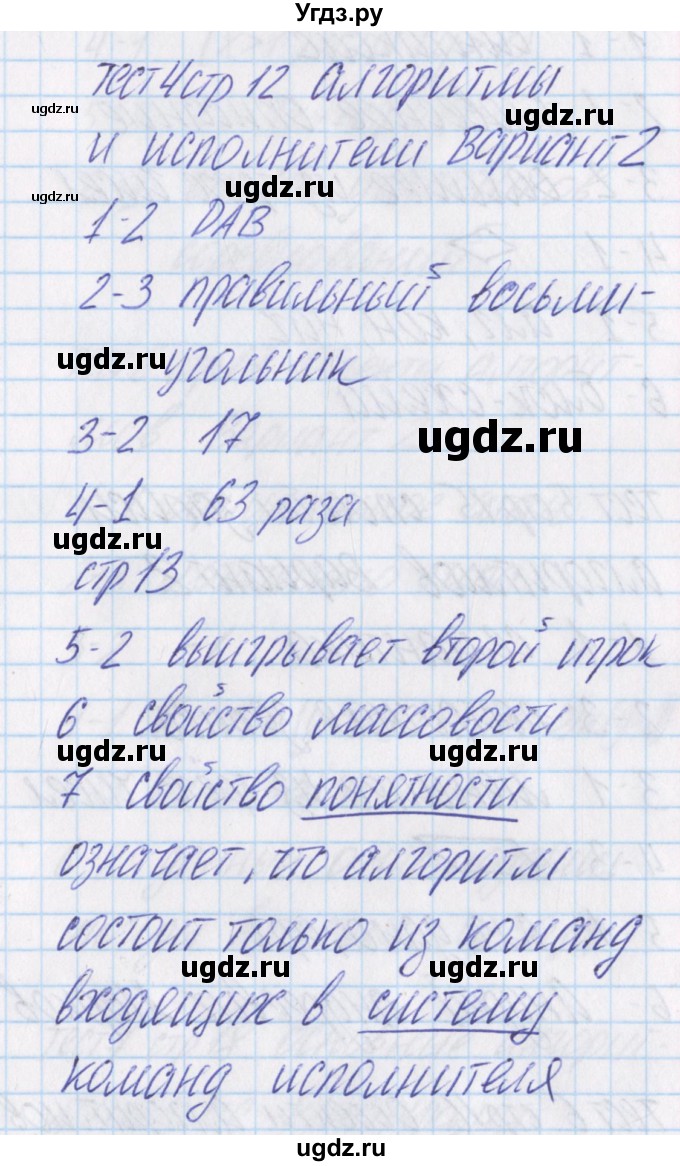 Угдз.ру
тест 4 стр 12 алгоритмы
ugdz.ru
ugdz.ru
и исполнители Вариант 2
ugdz.ru
ugdz.ru
1-2 DAB
2-3 правильный восьми-
ugdz.ru
угольник
3-2 17
ugdz.ru
4-1 63 раза
ugdz.ru
стр 13
5-2 выигрывает второй игрок
6 свойство массовости
ugdz.ru
ugdz.ru
7 свойство понятности
означает, что алгоритм
состоит только из команд
ugdz.ru
ugdz.ru
входящих в систему
команд исполнителя
ugdz.ru